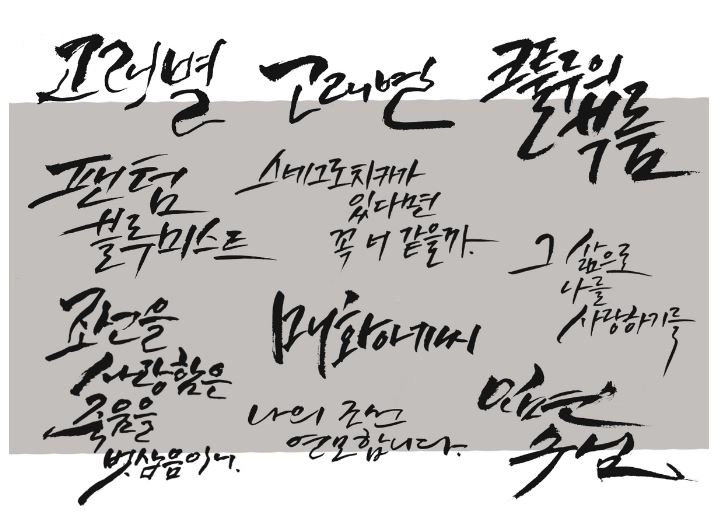 고래별
고래별
크툴루의
부름
팬텀
블루미스트
스네그로치카가
있다면
꼭 너 같을까.
그 삶으로
나를
사랑하기를
조선을
사랑함은
죽음을
벗삼음이니.
매화아메씨
나의 조선
연모합니다.
인면
수심